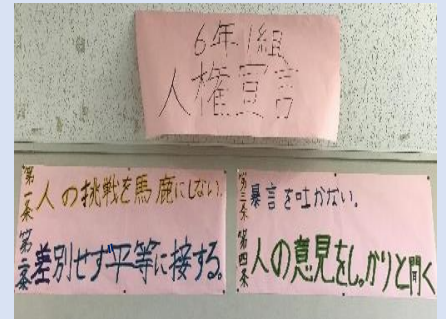 6年1組
人権宣言
第一条 人の挑戦を馬鹿にしない。
第二条 差別せず平等に接する。
第三条 暴言を吐かない。
第四条 人の意見をしっかりと聞く